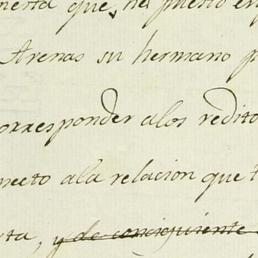 que, ha puesto en
Arenas su hermano p
orresponder alos redito
recto ala relacion que t
ta, y de consiguiente